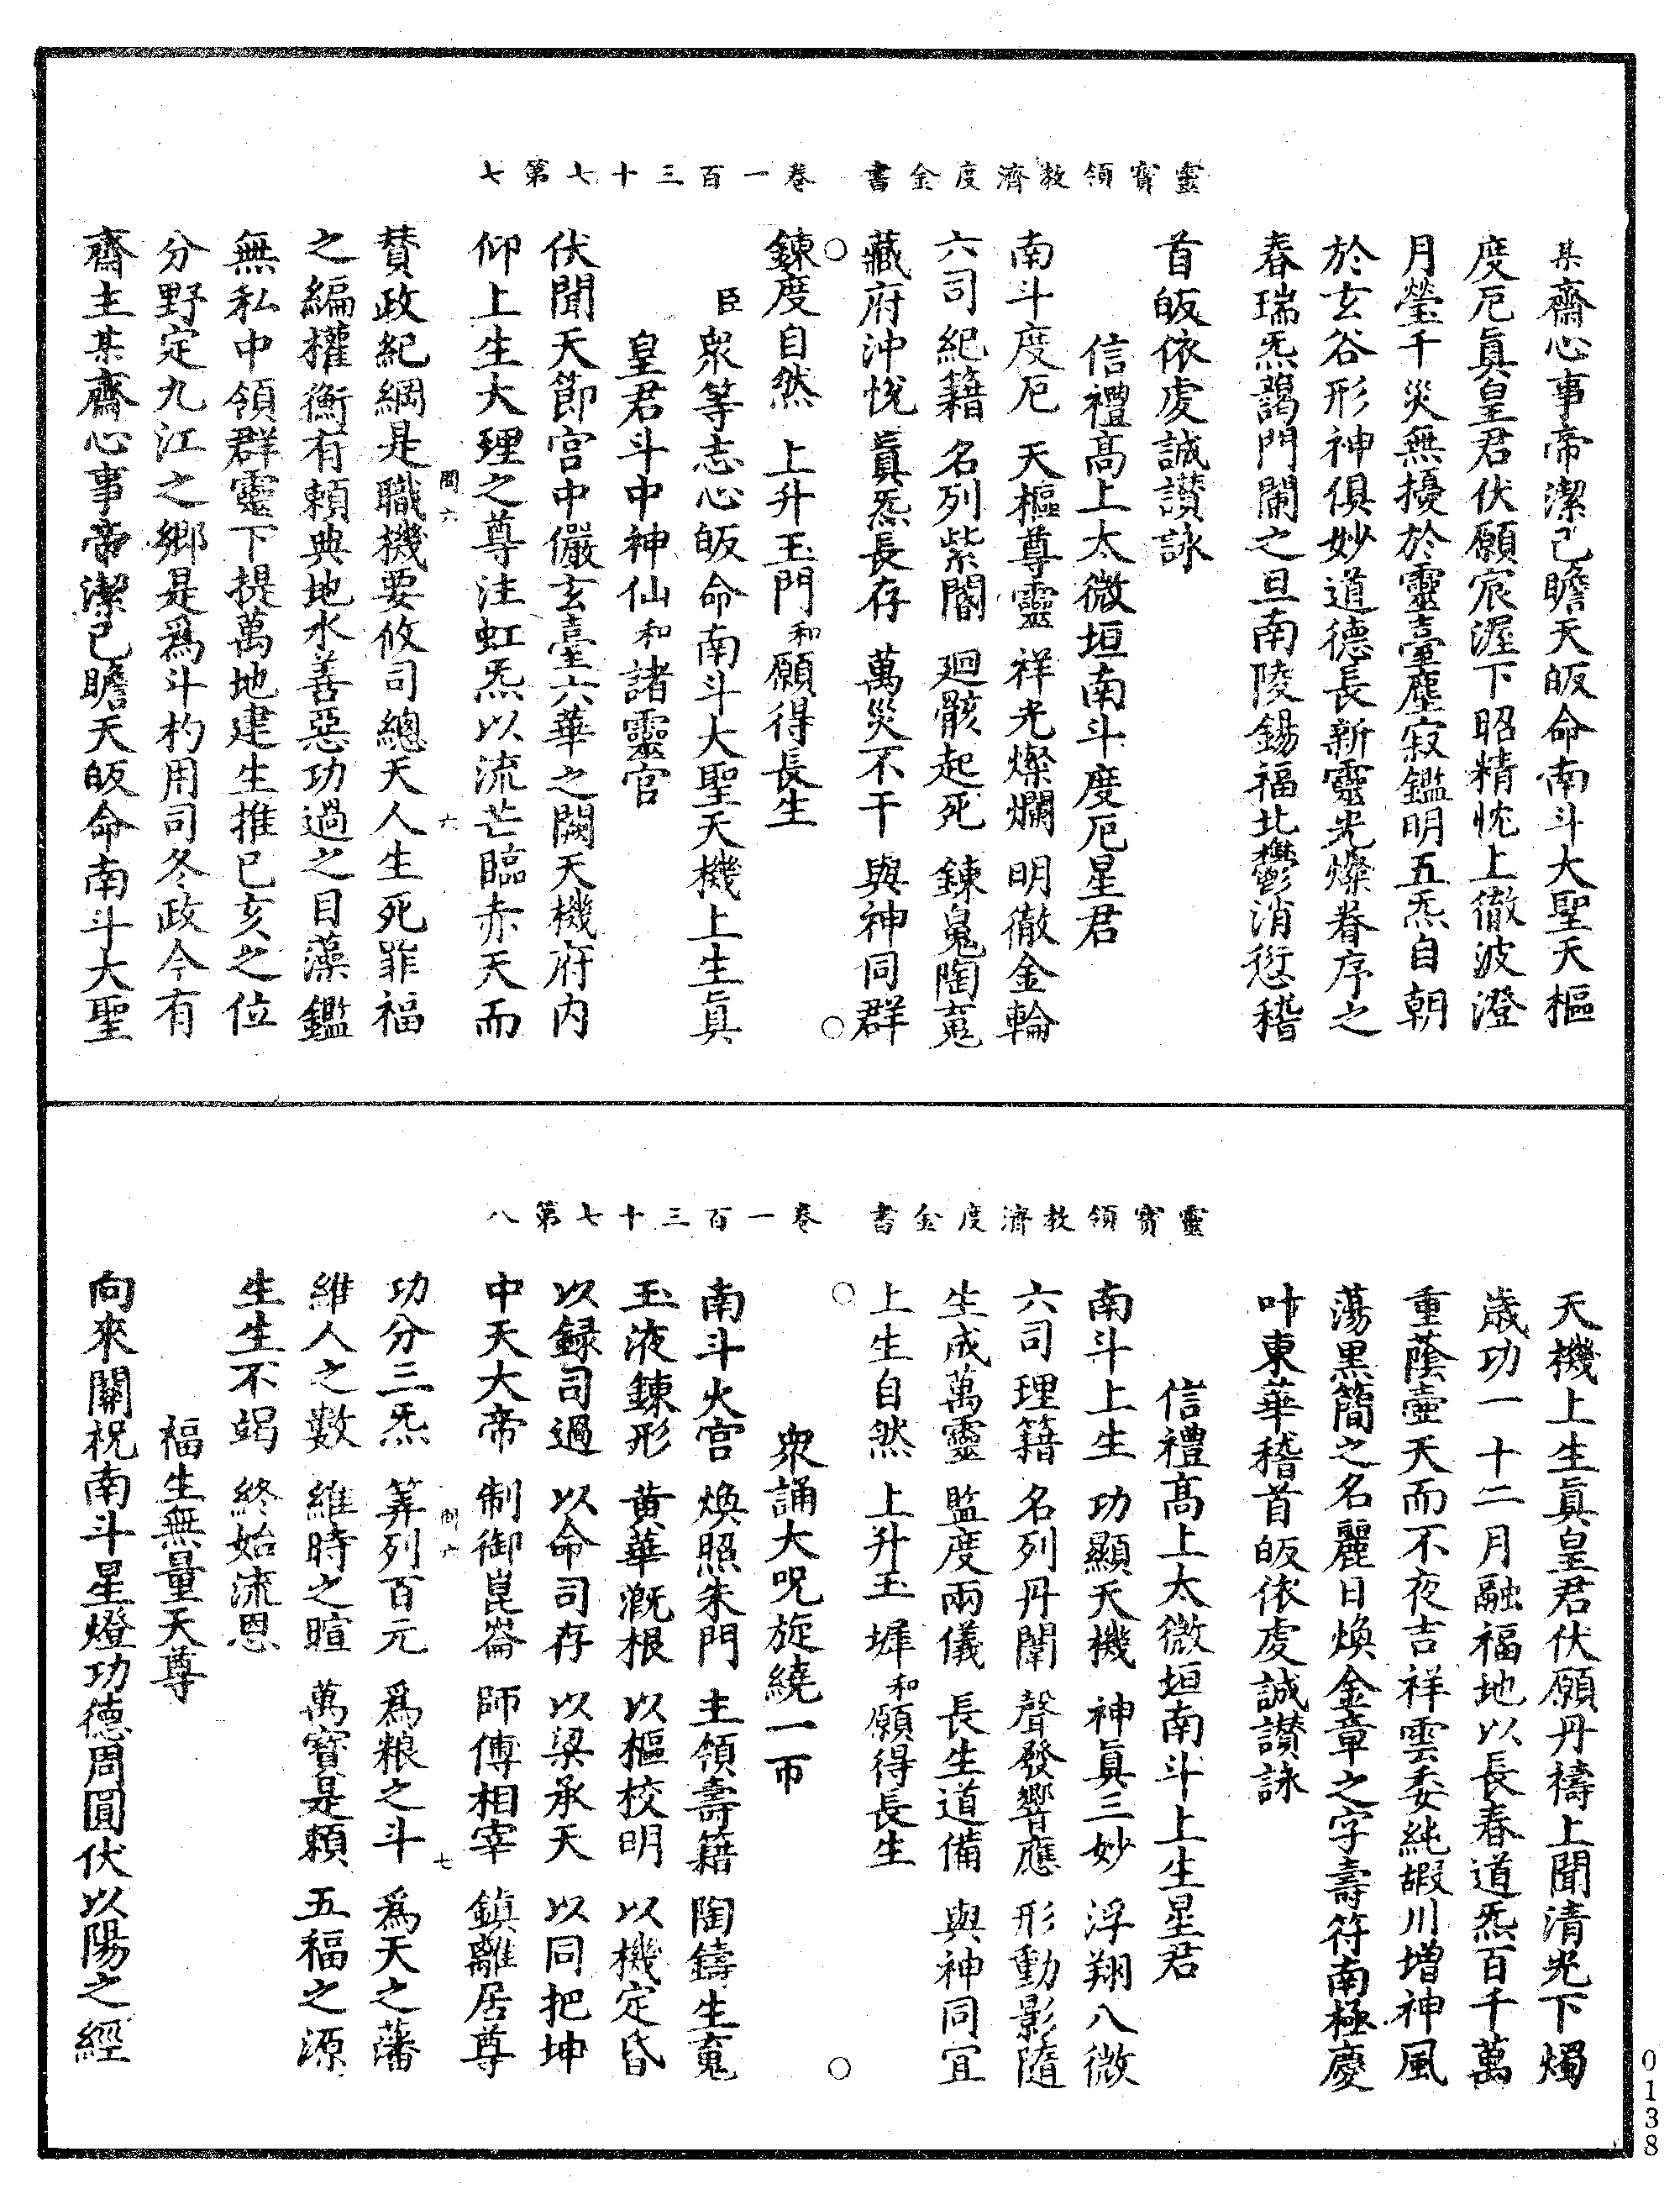 靈寶領教濟度金書　卷一百三十七第七
某齋心事帝潔己瞻天皈命南斗大聖天樞
度厄眞皇君伏願宸渥下昭精忱上徹波澄
月瑩千災無擾於靈臺塵寂鑑明五炁自朝
於玄谷形神俱妙道德長新靈光燦眷序之
春瑞炁藹門闌之旦南陵錫福北酆消愆稽
首皈依虔誠讚詠
信禮高上太微垣南斗度厄星君
南斗度厄　天樞尊靈　祥光燦爛　明徹金輪
六司紀籍　名列紫閽　廻骸起死　鍊鬼陶䰟
藏府沖悅　眞炁長存　萬災不干　與神同群
鍊度自然　上升玉門和願得長生
○　○
臣眾等志心皈命南斗大聖天機上生眞
皇君斗中神仙和諸靈官
伏聞天節宮中儼玄臺六華之闕天機府内
仰上生大理之尊注虹炁以流芒臨赤天而
關六　六
賛政紀綱是職機要攸司總天人生死罪福
之編權衡有賴典地水善惡功過之目藻鑑
無私中領群靈下提萬地建生推巳亥之位
分野定九江之郷是爲斗杓用司冬政今有
齋主某齋心事帝潔己瞻天皈命南斗大聖
靈寶領教濟度金書　卷一百三十七第八
天機上生眞皇君伏願丹禱上聞清光下燭
歲功一十二月融福地以長春道炁百千萬
重蔭壼天而不夜吉祥雲委純嘏川增神風
蕩黒簡之名麗日煥金章之字壽符南極慶
叶東華稽首皈依虔誠讚詠
信禮高上太微垣南斗上生星君
南斗上生　功顯天機　神眞三妙　浮翔八微
六司理籍　名列丹闈　聲發響應　形動影隨
生成萬靈　監度兩儀　長生道備　與神同宜
上生自然　上升玉墀和願得長生
○　○
眾誦大呪旋繞一帀
南斗火宮　煥照朱門　主領壽籍　陶鑄生䰟
玉液鍊形　黃華溉根　以樞校明　以機定昏
以録司過　以命司存　以梁承天　以同把坤
中天大帝　制御崑崙　師傅相宰　鎮離居尊
關六　七
功分三炁　筭列百元　爲粮之斗　爲天之藩
維人之數　維時之暄　萬寶是賴　五福之源
生生不竭　終始流恩
福生無量天尊
向來關祝南斗星燈功德周圓伏以陽之經
0138